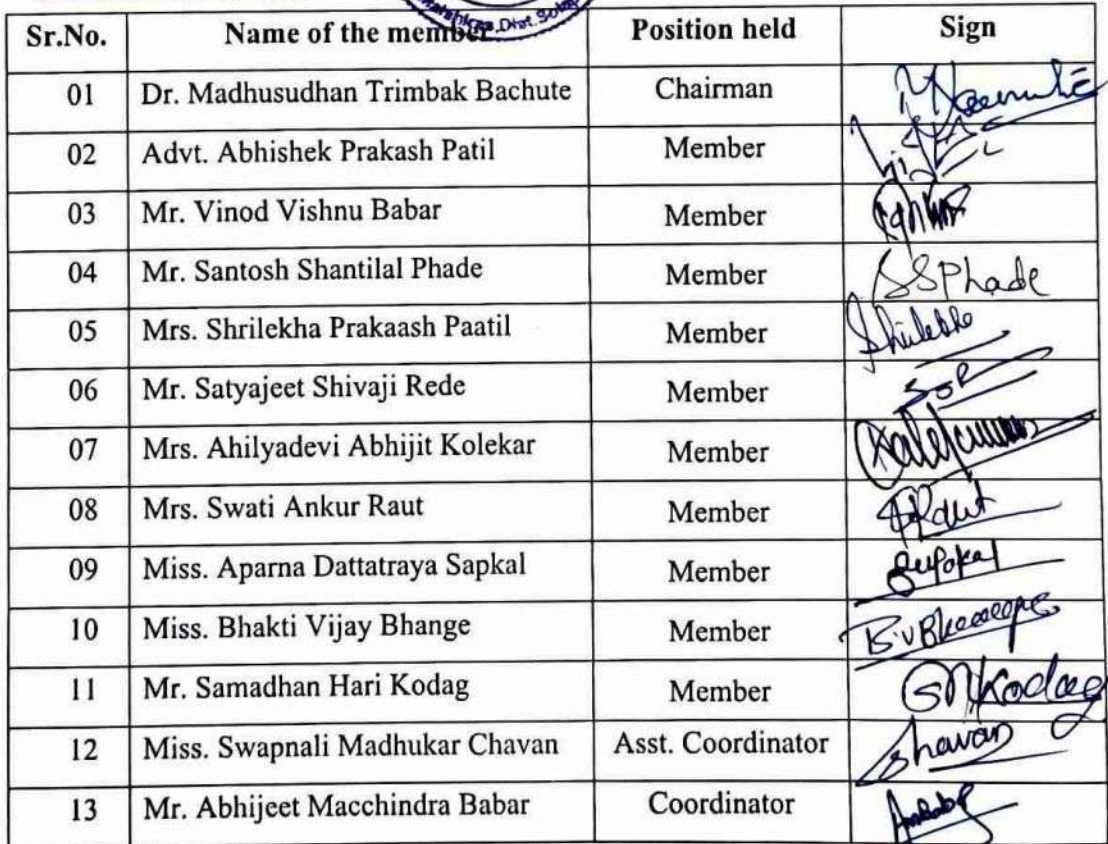 Dist. Solap
Sr.No. Name of the member Position held Sign
01 Dr. Madhusudhan Trimbak Bachute Chairman
02 Advt. Abhishek Prakash Patil Member
03 Mr. Vinod Vishnu Babar Member
04 Mr. Santosh Shantilal Phade Member SSPhade
05 Mrs. Shrilekha Prakaash Paatil Member Shrilekha
06 Mr. Satyajeet Shivaji Rede Member SSR
07 Mrs. Ahilyadevi Abhijit Kolekar Member
08 Mrs. Swati Ankur Raut Member
09 Miss. Aparna Dattatraya Sapkal Member
10 Miss. Bhakti Vijay Bhange Member
11 Mr. Samadhan Hari Kodag Member
12 Miss. Swapnali Madhukar Chavan Asst. Coordinator
13 Mr. Abhijeet Macchindra Babar Coordinator